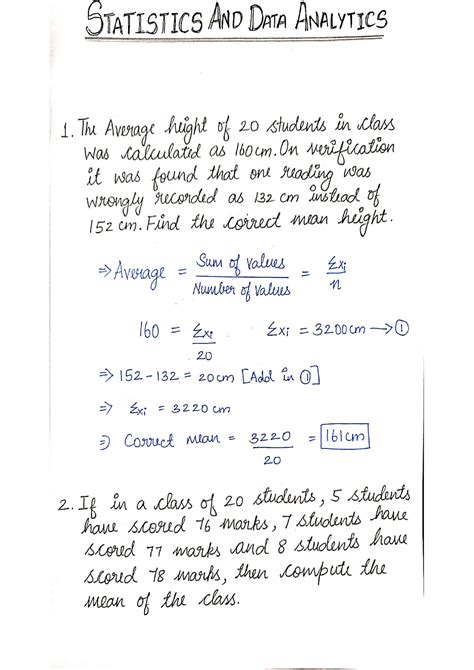 STATISTICS AND DATA ANALYTICS
1. The Average height of 20 students in class
was calculatd as 160cm. On verification
it was found that one reading was
wrongly recorded as 132 cm instead of
152 cm. Find the correct mean height.
⇒ Average = Sum of values / Number of values = Σxi / n
160 = Σxi / 20    Σxi = 3200cm → ①
⇒ 152 - 132 = 20cm [Add in ①]
⇒ Σxi = 3220cm
⇒ Correct mean = 3220 / 20 = 161cm
2. If in a class of 20 students, 5 students
have scored 76 marks, 7 students have
scored 77 marks and 8 students have
scored 78 marks, then compute the
mean of the class.